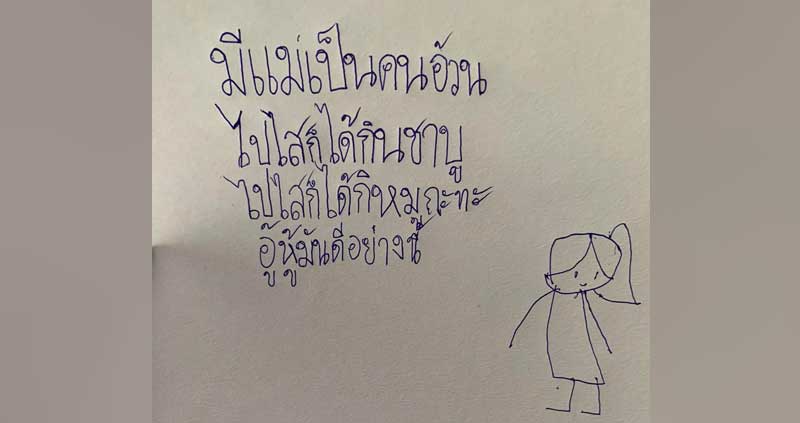 มีแม่เป็นคนอ้วน
ไปไสก็ได้กินชาบู
ไปไสก็ได้กิหมูกะทะ
อู้หู้มันดีอย่างนี้